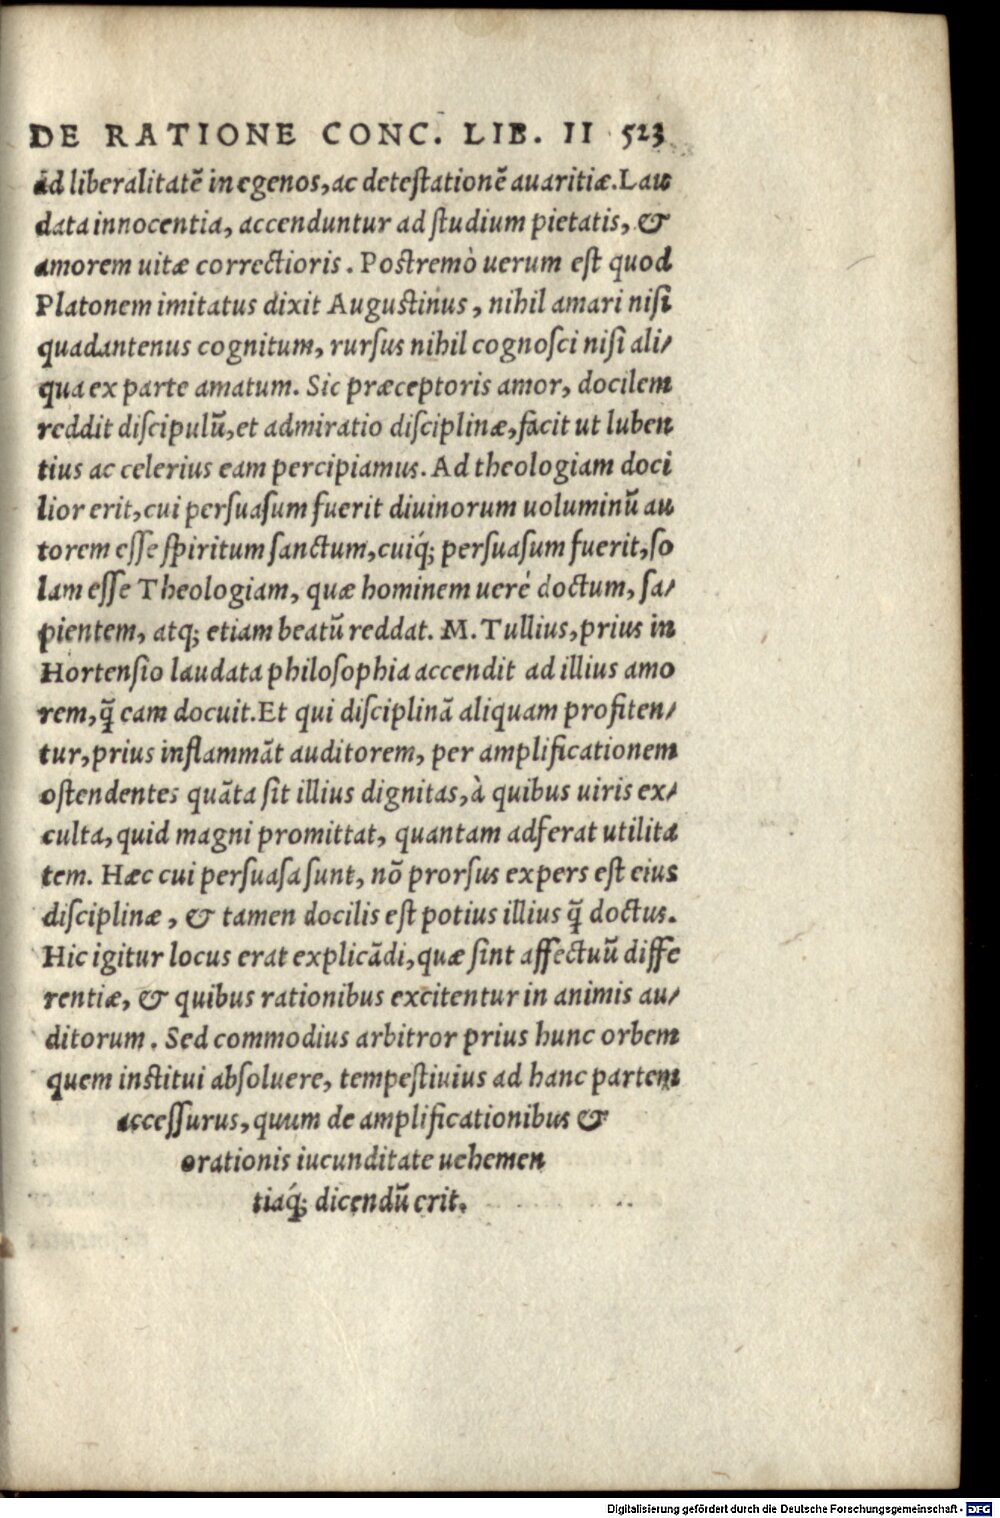 DE RATIONE CONC. LIB. II 523
ad liberalitatē in egenos, ac detestationē auaritiæ. Lau
data innocentia, accenduntur ad studium pietatis, &
amorem uitæ correctioris. Postremò uerum est quod
Platonem imitatus dixit Augustinus, nihil amari nisi
quadantenus cognitum, rursus nihil cognosci nisi ali/
qua ex parte amatum. Sic præceptoris amor, docilem
reddit discipulū, et admiratio disciplinæ, facit ut luben
tius ac celerius eam percipiamus. Ad theologiam doci
lior erit, cui persuasum fuerit diuinorum uoluminū au
torem esse spiritum sanctum, cuiq́; persuasum fuerit, so
lam esse Theologiam, quæ hominem uerè doctum, sa/
pientem, atq; etiam beatū reddat. M. Tullius, prius in
Hortensio laudata philosophia accendit ad illius amo
rem, q̄ eam docuit. Et qui disciplinā aliquam profiten/
tur, prius inflammāt auditorem, per amplificationem
ostendentes quāta sit illius dignitas, à quibus uiris ex/
culta, quid magni promittat, quantam adferat utilita
tem. Hæc cui persuasa sunt, nō prorsus expers est eius
disciplinæ, & tamen docilis est potius illius q̄ doctus.
Hic igitur locus erat explicādi, quæ sint affectuū diffe
rentiæ, & quibus rationibus excitentur in animis au/
ditorum. Sed commodius arbitror prius hunc orbem
quem institui absoluere, tempestiuius ad hanc partem
accessurus, quum de amplificationibus &
orationis iucunditate uehemen
tiaq́; dicendū erit.
Digitalisierung gefördert durch die Deutsche Forschungsgemeinschaft - DFG